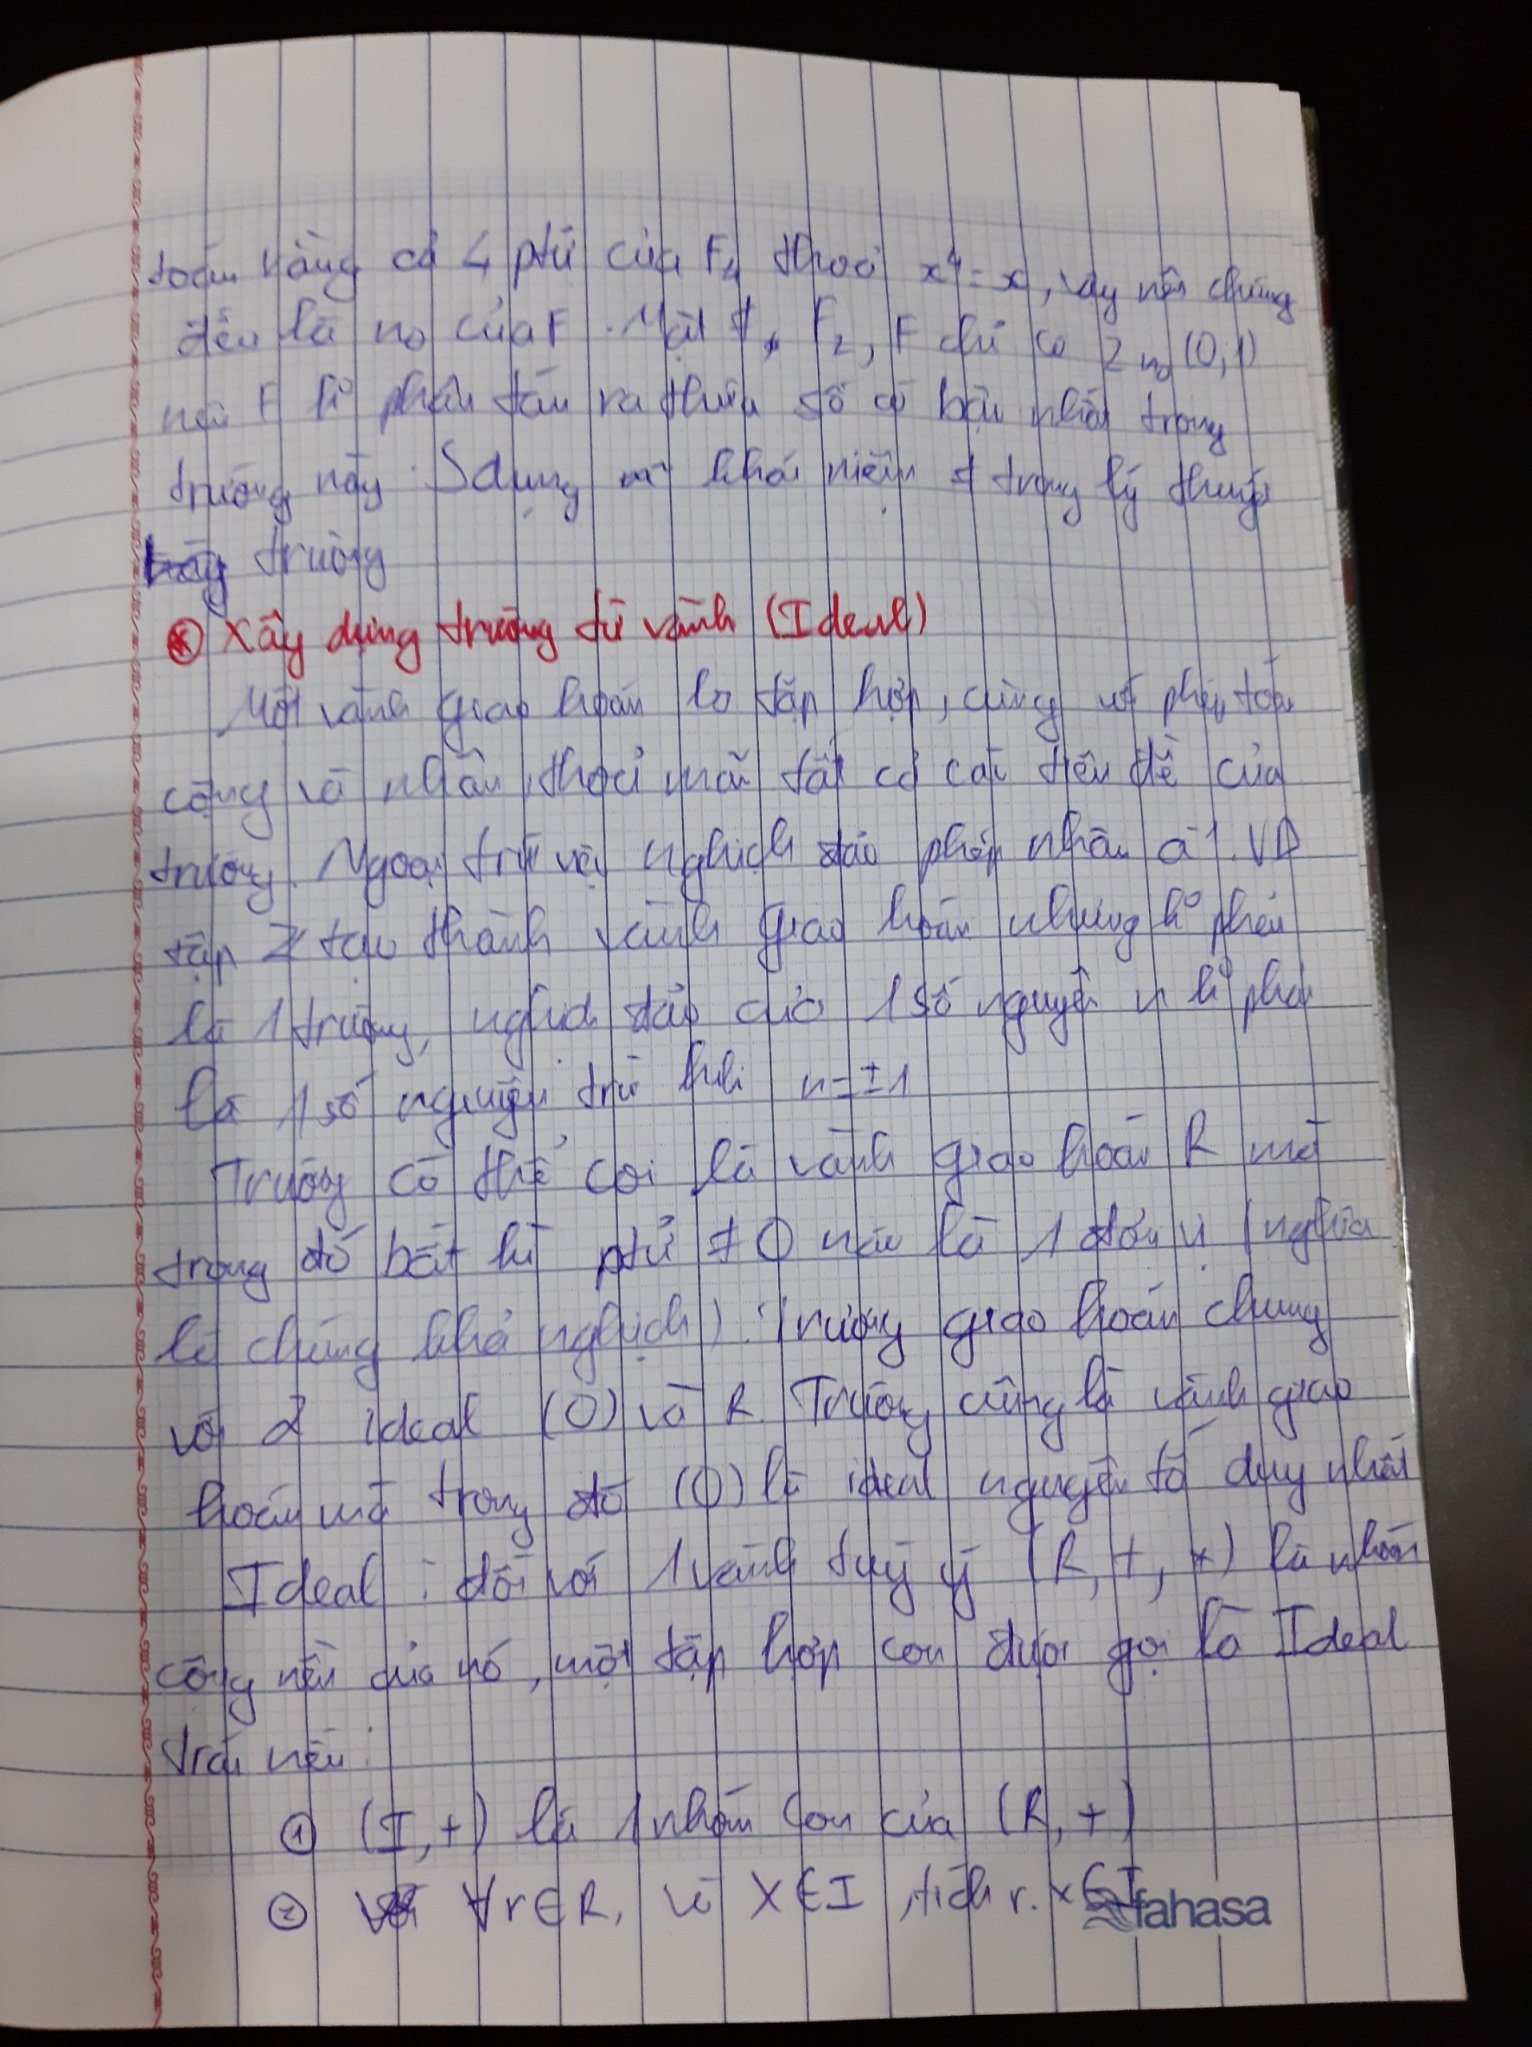 toán rằng cả 4 ptử của F₄ thoả x⁴ = x, vậy nên chúng
đều là no của F. Mặt ≠, F₂, F chỉ có 2 no (0,1)
nên F k° phân tán ra thừa số có bậc nhất trong
trường này. Sdụng khái niệm ≠ trong lý thuyết
trường
⊛ Xây dựng trường từ vành (Ideal)
Một vành giao hoán là tập hợp, cùng với phép toán
cộng và nhân, thoả mãn tất cả các tiên đề của
trường. Ngoại trừ việc nghịch đảo phép nhân a⁻¹. VD
tập Z tạo thành vành giao hoán nhưng k° phải
là 1 trường, nghịch đảo của 1 số nguyên n k° phải
là 1 số nguyên trừ khi n = ±1
Trường có thể coi là vành giao hoán R mà
trong đó bất kì ptử ≠ 0 nào là 1 đơn vị (nghĩa
là chúng khả nghịch). Trường giao hoán chung
với 2 ideal (0) và R. Trường cũng là vành giao
hoán mà trong đó (0) là ideal nguyên tố duy nhất
Ideal : đối với 1 vành tuỳ ý (R, +, *) là nhóm
cộng nền của nó, một tập hợp con được gọi là Ideal
trái nếu :
① (I, +) là 1 nhóm con của (R, +)
② ∀r ∈ R, và X ∈ I, tích r.x ∈ I
fahasa